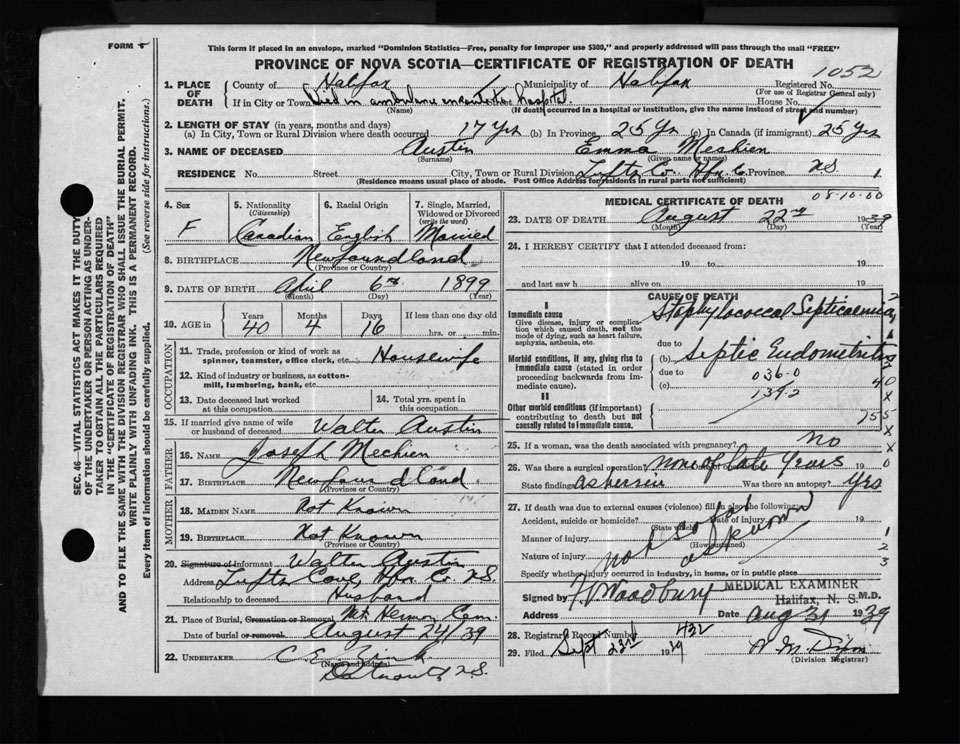 FORM 5
This form if placed in an envelope, marked "Dominion Statistics—Free, penalty for improper use $300," and properly addressed will pass through the mail "FREE"
PROVINCE OF NOVA SCOTIA—CERTIFICATE OF REGISTRATION OF DEATH
1052
1. PLACE OF DEATH County of Halifax Municipality of Halifax Registered No. (For use of Registrar General only)
If in City or Town Died in ambulance enroute to Hospital Street House No.
(Name) (If death occurred in a hospital or institution, give the name instead of street and number)
2. LENGTH OF STAY (in years, months and days)
(a) In City, Town or Rural Division where death occurred 17 Yrs (b) In Province 25 Yr (c) In Canada (if immigrant) 25 Yrs
3. NAME OF DECEASED Austin Emma Mechien
(Surname) (Given name or names)
RESIDENCE No. Street City, Town or Rural Division Tufts Co. Hfx. C. Province NS. 1
(Residence means usual place of abode. Post Office Address for residents in rural parts not sufficient)
4. Sex F
5. Nationality (Citizenship) Canadian
6. Racial Origin English
7. Single, Married, Widowed or Divorced (write the word) Married
8. BIRTHPLACE Newfoundland
(Province or Country)
9. DATE OF BIRTH April 6th 1899
(Month) (Day) (Year)
10. AGE in Years 40 Months 4 Days 16 If less than one day hrs. or min.
OCCUPATION
11. Trade, profession or kind of work as spinner, teamster, office clerk, etc. Housewife
12. Kind of industry or business, as cotton-mill, lumbering, bank, etc.
13. Date deceased last worked at this occupation
14. Total yrs. spent in this occupation
15. If married give name of wife or husband of deceased Walter Austin
FATHER
16. NAME Joseph Mechien
17. BIRTHPLACE Newfoundland
(Province or Country)
MOTHER
18. MAIDEN NAME Not Known
19. BIRTHPLACE Not Known
(Province or Country)
20. Signature of informant Walter Austin
Address Tufts Cove, Hfx Co NS.
Relationship to deceased Husband
21. Place of Burial, Cremation or Removal Mt Hermon Cem.
Date of burial or removal August 24/39
22. UNDERTAKER C. E. Zink
(Name and address)
Dartmouth, N.S.
MEDICAL CERTIFICATE OF DEATH 08-10-60
23. DATE OF DEATH August 22nd 1939
(Month) (Day) (Year)
24. I HEREBY CERTIFY that I attended deceased from:
19 to 19
and last saw h alive on 19
CAUSE OF DEATH
I
Immediate cause
Give disease, injury or complication which caused death, not the mode of dying, such as heart failure, asphyxia, asthenia, etc.
Staphylococcal Septicaemia
due to
Morbid conditions, if any, giving rise to immediate cause (stated in order proceeding backwards from immediate cause).
(b) Septic Endometritis
due to 036-0
(c) 139-2
II
Other morbid conditions (if important) contributing to death but not causally related to immediate cause.
25. If a woman, was the death associated with pregnancy? no
26. Was there a surgical operation? none of late years 19
State findings Was there an autopsy? Yes
27. If death was due to external causes (violence) fill in also the following:
Accident, suicide or homicide? Date of injury 19
(State which)
Manner of injury
(How sustained)
Nature of injury
not so far as known
Specify whether injury occurred in industry, in home, or in public place
MEDICAL EXAMINER
Halifax, N. S.
Signed by Woodbury M.D.
Address Date Aug 31 1939
28. Registrar's Record Number 432
29. Filed Sept 23rd 19
(Division Registrar)
SEC. 46—VITAL STATISTICS ACT MAKES IT THE DUTY OF THE UNDERTAKER OR PERSON ACTING AS UNDERTAKER TO OBTAIN ALL THE PARTICULARS REQUIRED IN THE "CERTIFICATE OF REGISTRATION OF DEATH"
AND TO FILE THE SAME WITH THE DIVISION REGISTRAR WHO SHALL ISSUE THE BURIAL PERMIT.
WRITE PLAINLY WITH UNFADING INK. THIS IS A PERMANENT RECORD.
Every item of information should be carefully supplied. (See reverse side for instructions.)